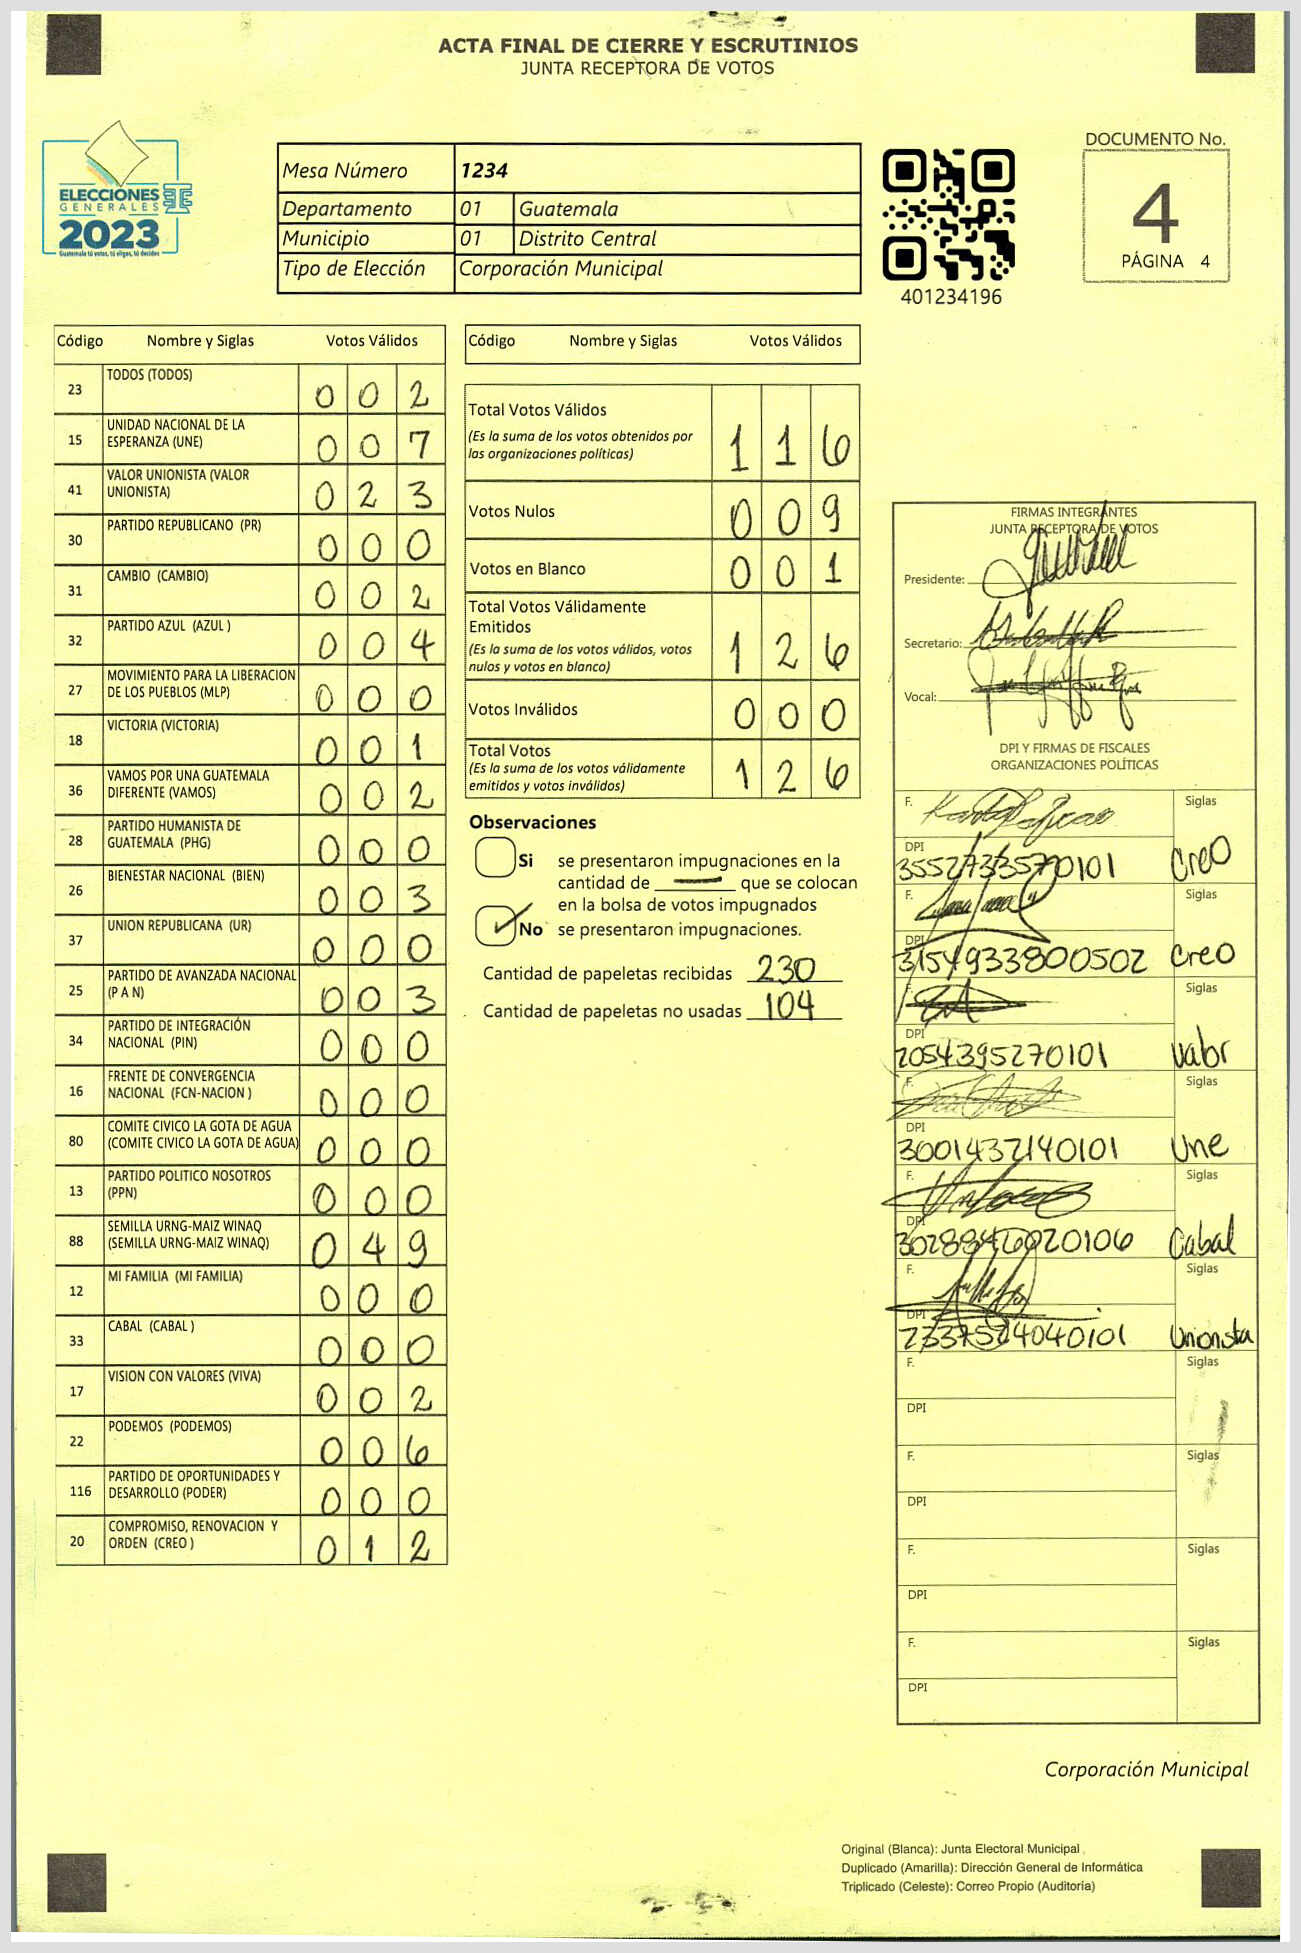 ACTA FINAL DE CIERRE Y ESCRUTINIOS
JUNTA RECEPTORA DE VOTOS
ELECCIONES
GENERALES
2023
Guatemala tú votas, tú eliges, tú decides
Mesa Número 1234
Departamento 01 Guatemala
Municipio 01 Distrito Central
Tipo de Elección Corporación Municipal
401234196
DOCUMENTO No.
4
PÁGINA 4
Código Nombre y Siglas Votos Válidos
23 TODOS (TODOS) 0 0 2
15 UNIDAD NACIONAL DE LA
ESPERANZA (UNE) 0 0 7
41 VALOR UNIONISTA (VALOR
UNIONISTA) 0 2 3
30 PARTIDO REPUBLICANO (PR) 0 0 0
31 CAMBIO (CAMBIO) 0 0 2
32 PARTIDO AZUL (AZUL ) 0 0 4
27 MOVIMIENTO PARA LA LIBERACION
DE LOS PUEBLOS (MLP) 0 0 0
18 VICTORIA (VICTORIA) 0 0 1
36 VAMOS POR UNA GUATEMALA
DIFERENTE (VAMOS) 0 0 2
28 PARTIDO HUMANISTA DE
GUATEMALA (PHG) 0 0 0
26 BIENESTAR NACIONAL (BIEN) 0 0 3
37 UNION REPUBLICANA (UR) 0 0 0
25 PARTIDO DE AVANZADA NACIONAL
(P A N) 0 0 3
34 PARTIDO DE INTEGRACIÓN
NACIONAL (PIN) 0 0 0
16 FRENTE DE CONVERGENCIA
NACIONAL (FCN-NACION ) 0 0 0
80 COMITE CIVICO LA GOTA DE AGUA
(COMITE CIVICO LA GOTA DE AGUA) 0 0 0
13 PARTIDO POLITICO NOSOTROS
(PPN) 0 0 0
88 SEMILLA URNG-MAIZ WINAQ
(SEMILLA URNG-MAIZ WINAQ) 0 4 9
12 MI FAMILIA (MI FAMILIA) 0 0 0
33 CABAL (CABAL ) 0 0 0
17 VISION CON VALORES (VIVA) 0 0 2
22 PODEMOS (PODEMOS) 0 0 6
116 PARTIDO DE OPORTUNIDADES Y
DESARROLLO (PODER) 0 0 0
20 COMPROMISO, RENOVACION Y
ORDEN (CREO ) 0 1 2
Código Nombre y Siglas Votos Válidos
Total Votos Válidos
(Es la suma de los votos obtenidos por
las organizaciones políticas) 1 1 6
Votos Nulos 0 0 9
Votos en Blanco 0 0 1
Total Votos Válidamente
Emitidos
(Es la suma de los votos válidos, votos
nulos y votos en blanco) 1 2 6
Votos Inválidos 0 0 0
Total Votos
(Es la suma de los votos válidamente
emitidos y votos inválidos) 1 2 6
Observaciones
Si se presentaron impugnaciones en la
cantidad de que se colocan
en la bolsa de votos impugnados
No se presentaron impugnaciones.
Cantidad de papeletas recibidas 230
Cantidad de papeletas no usadas 104
FIRMAS INTEGRANTES
JUNTA RECEPTORA DE VOTOS
Presidente:
Secretario:
Vocal:
DPI Y FIRMAS DE FISCALES
ORGANIZACIONES POLÍTICAS
F. Siglas
DPI
Creo
F. Siglas
DPI
3154933800502 Creo
F. Siglas
DPI
2054395270101 Valor
F. Siglas
DPI
3001432140101 Une
F. Siglas
DPI
Cabal
F. Siglas
DPI
Unionista
F. Siglas
DPI
F. Siglas
DPI
F. Siglas
DPI
F. Siglas
DPI
Corporación Municipal
Original (Blanca): Junta Electoral Municipal
Duplicado (Amarilla): Dirección General de Informática
Triplicado (Celeste): Correo Propio (Auditoría)